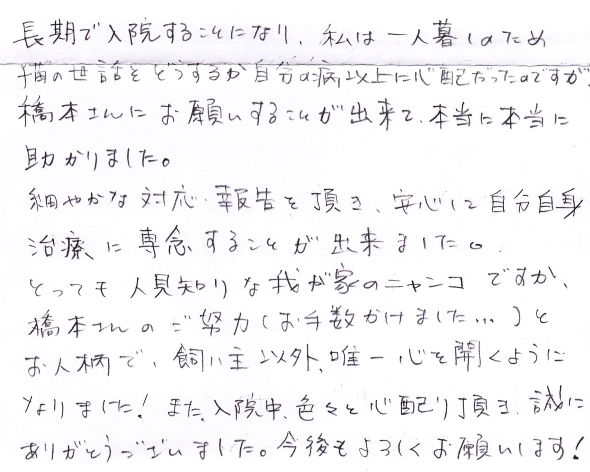 長期で入院することになり、私は一人暮しのため
猫の世話をどうするか自分の病以上に心配だったのですが、
橋本さんにお願いすることが出来て、本当に本当に
助かりました。
細やかな対応・報告を頂き、安心して自分自身
治療に専念することが出来ました。
とっても人見知りな我が家のニャンコですが、
橋本さんのご努力(お手数かけました…)と
お人柄で、飼い主以外、唯一心を開くように
なりました!また、入院中、色々と心配り頂き、誠に
ありがとうございました。今後もよろしくお願いします!